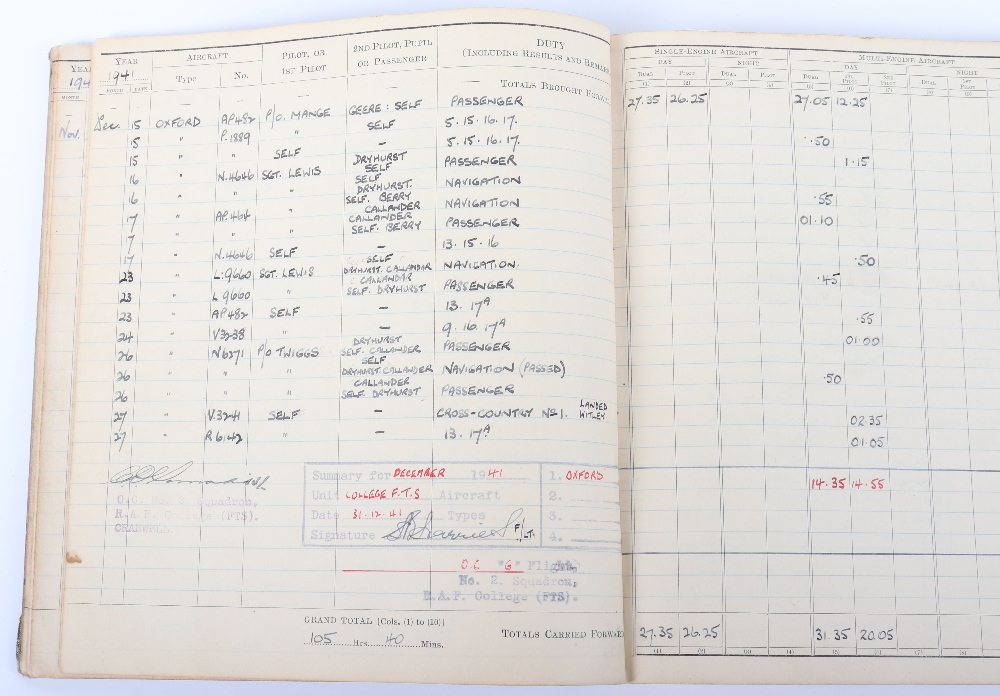 YEAR
AIRCRAFT
PILOT, OR
1ST PILOT
2ND PILOT, PUPIL
OR PASSENGER
DUTY
(INCLUDING RESULTS AND
SINGLE-ENGINE AIRCRAFT
MULTI-ENGINE AIRCRAFT
1941
Type
No.
DAY
NIGHT
DAY
NIGHT
MONTH DATE
DUAL PILOT DUAL PILOT DUAL 1ST PILOT 2ND PILOT DUAL 1ST PILOT
— — — — — — TOTALS BROUGHT
27.35 26.25 27.05 12.25
Nov.
Dec. 15 OXFORD AP482 P/O. MANGE GEERE : SELF PASSENGER
15 " P.1889 " SELF 5. 15. 16. 17. .50
15 " " SELF — 5. 15. 16. 17. 1.15
16 " N.4646 SGT. LEWIS DRYHURST SELF PASSENGER
16 " " " SELF DRYHURST. NAVIGATION .55
17 " AP.464 " SELF. BERRY CALLANDER NAVIGATION 01.10
17 " " " CALLANDER SELF. BERRY PASSENGER
17 " N.4646 SELF — 13. 15. 16 .50
23 " L.9660 SGT. LEWIS SELF DRYHURST. CALLANDAR NAVIGATION. .45
23 " L 9660 " CALLANDAR SELF. DRYHURST PASSENGER
23 " AP482 SELF — 13. 17A .55
24 " V3238 " — 9. 16. 17A 01.00
26 " N6271 P/O TWIGGS DRYHURST SELF. CALLANDER PASSENGER
26 " " " SELF DRYHURST. CALLANDER NAVIGATION (PASSED) .50
26 " " " CALLANDER SELF. DRYHURST PASSENGER
27 " V.3241 SELF — CROSS-COUNTRY No1. LANDED WITLEY 02.35
27 " R6142 " — 13. 17A 01.05
Summary for DECEMBER 1941 1. OXFORD 14.35 14.55
Unit COLLEGE F.T.S Aircraft 2.
Date 31.12.41 Types 3.
Signature F/LT. 4.
Squadron,
R.A.F. College (FTS).
O.C "G" Flight,
No. 2. Squadron,
R.A.F. College (FTS).
GRAND TOTAL [Cols. (1) to (10)]
105 Hrs. 40 Mins.
TOTALS CARRIED FORWARD 27.35 26.25 31.35 20.05
(1) (2) (3) (4) (5) (6) (7) (8)